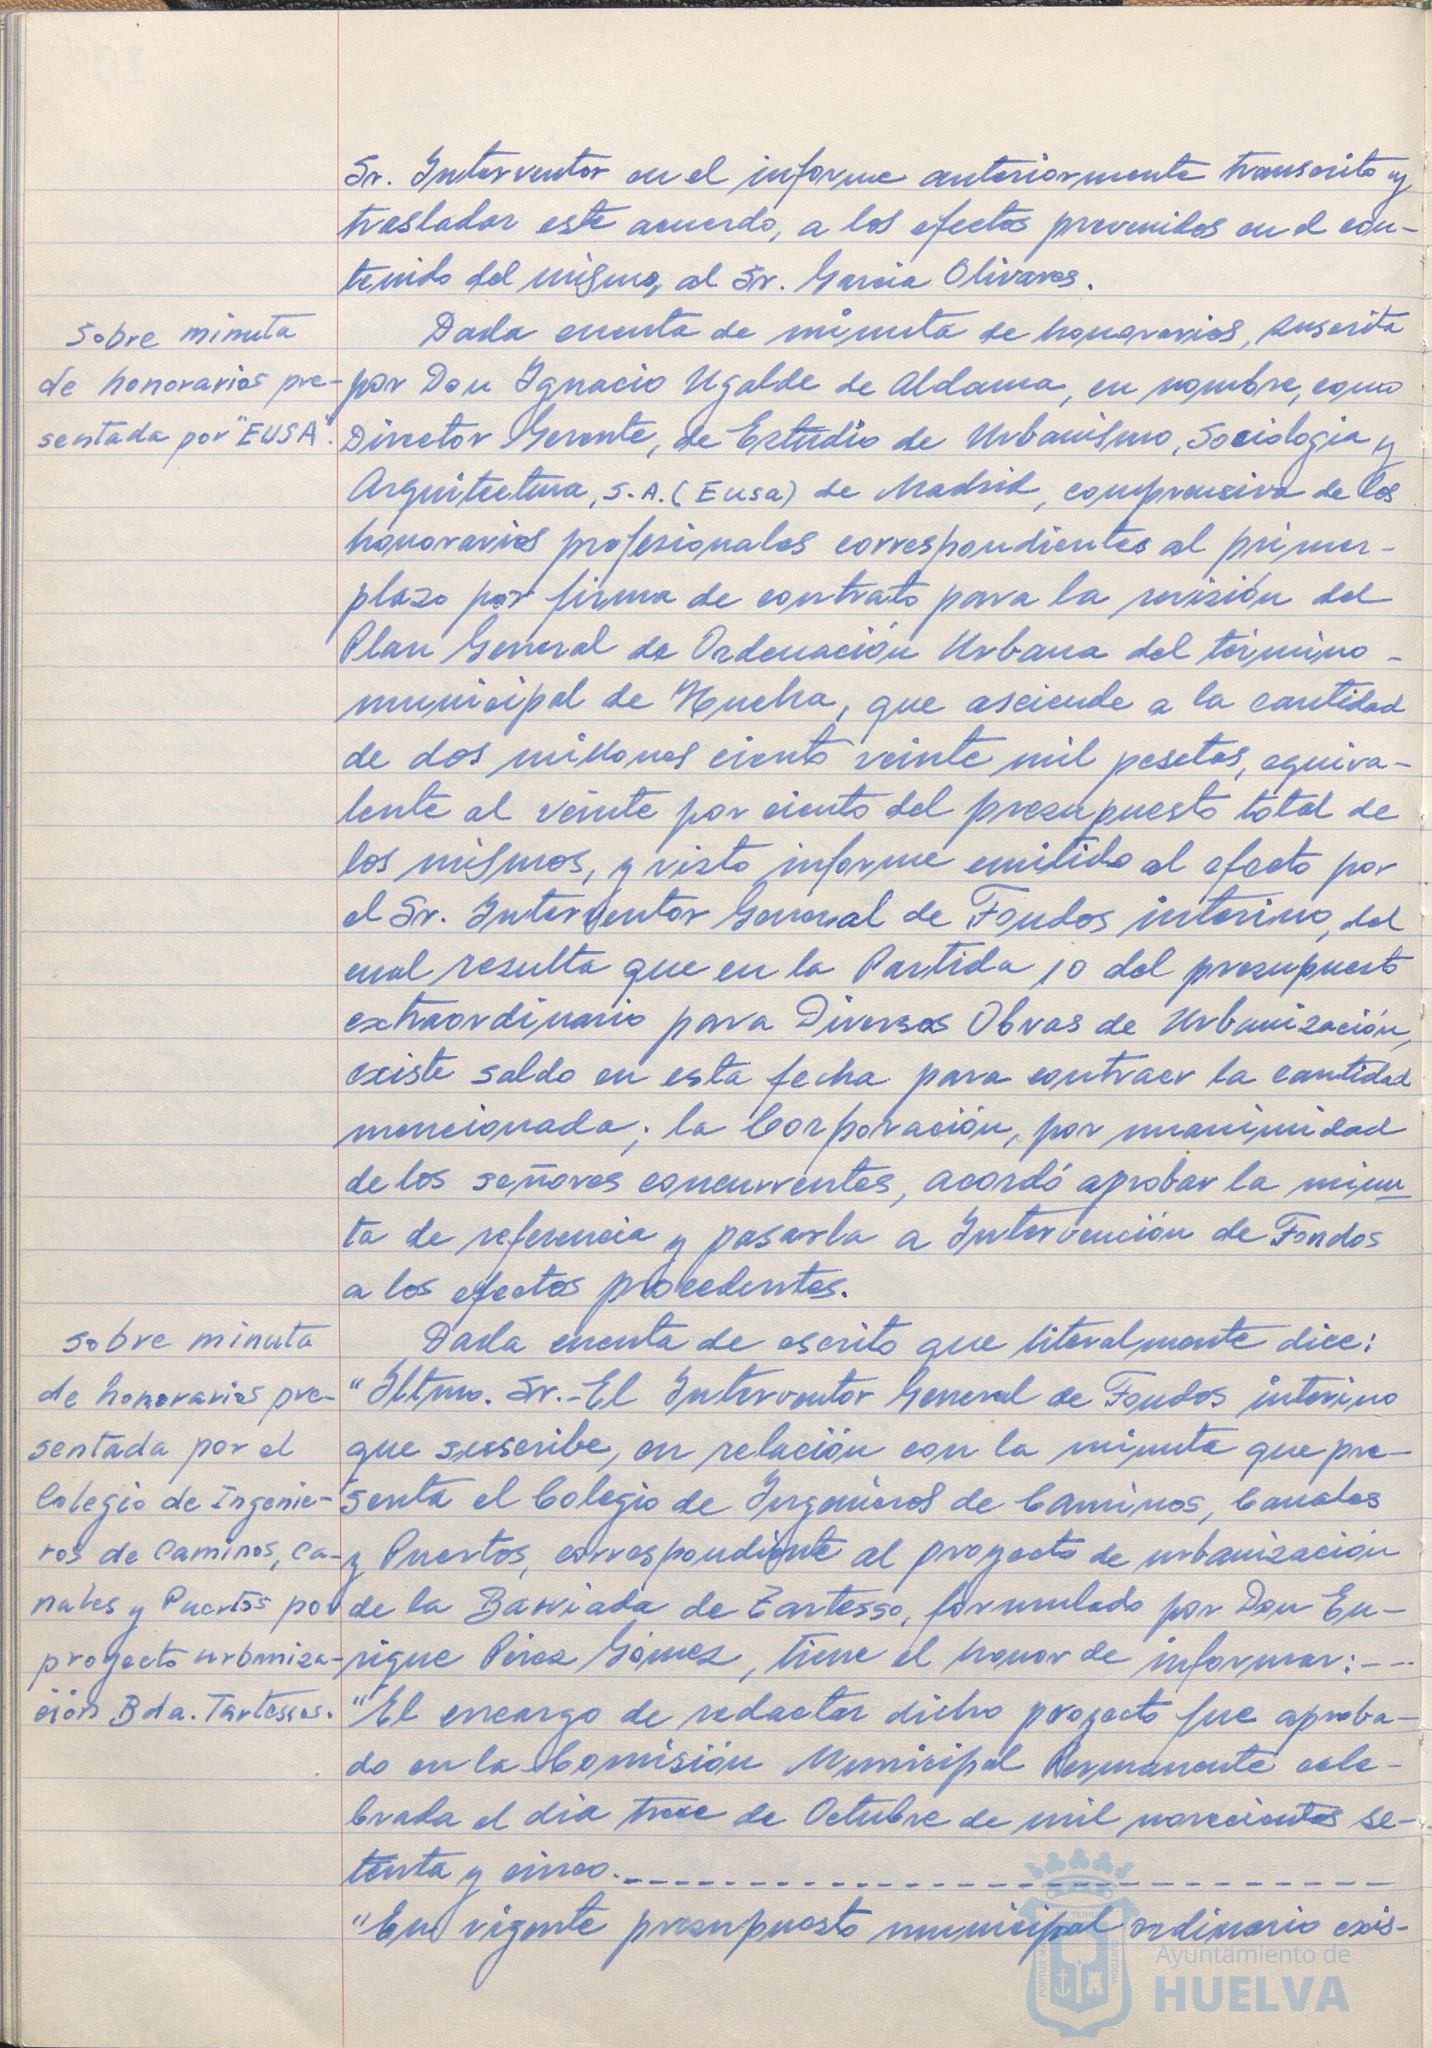 Sr. Interventor en el informe anteriormente transcrito y
trasladar este acuerdo, a los efectos prevenidos en el con-
tenido del mismo, al Sr. Garcia Olivares.
Sobre minuta
de honorarios pre-
sentada por "EUSA".
Dada cuenta de minuta de honorarios, suscrita
por Don Ignacio Ugalde de Aldama, en nombre, como
Director Gerente, de Estudio de Urbanismo, Sociologia y
Arquitectura, S.A. (Eusa) de Madrid, comprensiva de los
honorarios profesionales correspondientes al primer-
plazo por firma de contrato para la revisión del
Plan General de Ordenación Urbana del término-
municipal de Huelva, que asciende a la cantidad
de dos millones ciento veinte mil pesetas, equiva-
lente al veinte por ciento del presupuesto total de
los mismos, y visto informe emitido al efecto por
el Sr. Interventor General de Fondos interino, del
cual resulta que en la Partida 10 del presupuesto
extraordinario para Diversas Obras de Urbanización,
existe saldo en esta fecha para contraer la cantidad
mencionada; la Corporación, por unanimidad
de los señores concurrentes, acordó aprobar la minu-
ta de referencia y pasarla a Intervención de Fondos
a los efectos procedentes.
Sobre minuta
de honorarios pre-
sentada por el
Colegio de Ingenie-
ros de Caminos, Ca-
nales y Puertos por
proyecto urbaniza-
ción Bda. Tartessos.
Dada cuenta de escrito que literalmente dice:
"Iltmo. Sr.-El Interventor General de Fondos interino
que suscribe, en relación con la minuta que pre-
senta el Colegio de Ingenieros de Caminos, Canales
y Puertos, correspondiente al proyecto de urbanización
de la Barriada de Tartesso, formulado por Don En-
rique Pérez Gómez, tiene el honor de informar:---
"El encargo de redactar dicho proyecto fue aproba-
do en la Comisión Municipal Permanente cele-
brada el dia trece de Octubre de mil novecientos se-
tenta y cinco.
"En vigente presupuesto municipal ordinario exis-
PORTUS MARIS ET TERRAE CUSTODIA
Ayuntamiento de
HUELVA